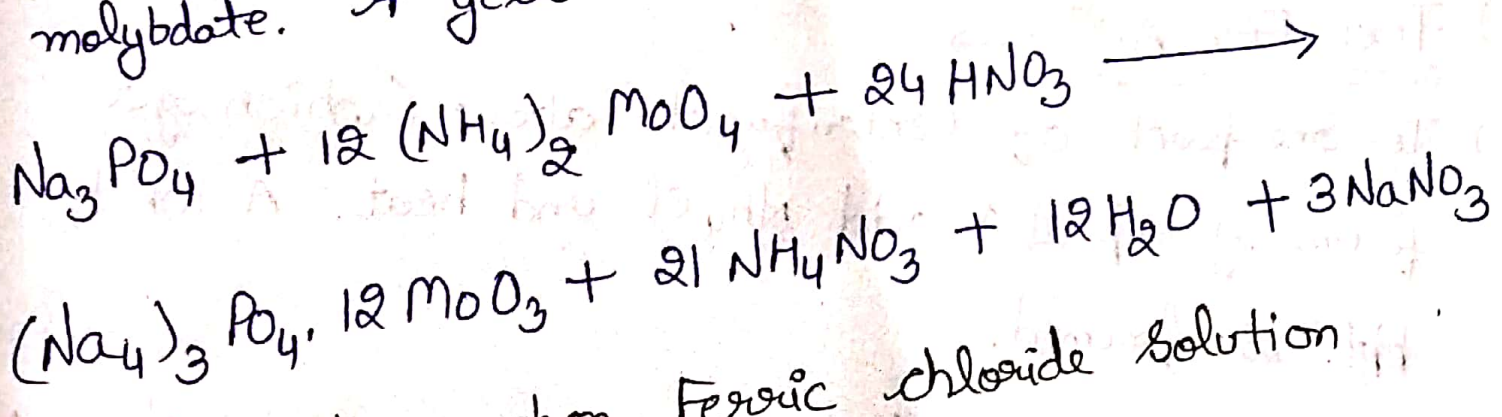 molybdate. A
Na₃PO₄ + 12 (NH₄)₂ MoO₄ + 24 HNO₃ ⟶
(Na₄)₃ PO₄. 12 MoO₃ + 21 NH₄NO₃ + 12 H₂O + 3 NaNO₃
Ferric chloride solution